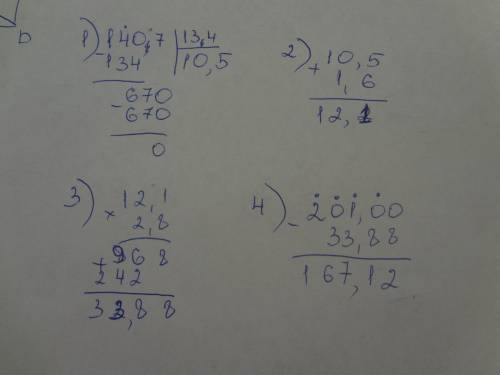 D
1) -140,7 | 13,4
134 | 10,5
-670
670
0
2) + 10,5
1,6
12,1
3) × 12,1
2,8
+ 968
242
33,88
4) - 201,00
33,88
167,12